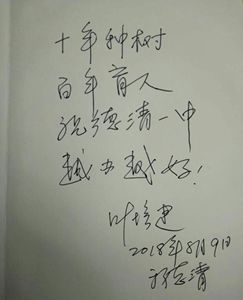 十年种树
百年育人
祝德清一中
越办越好！
叶培建
2018年8月9日
于德清